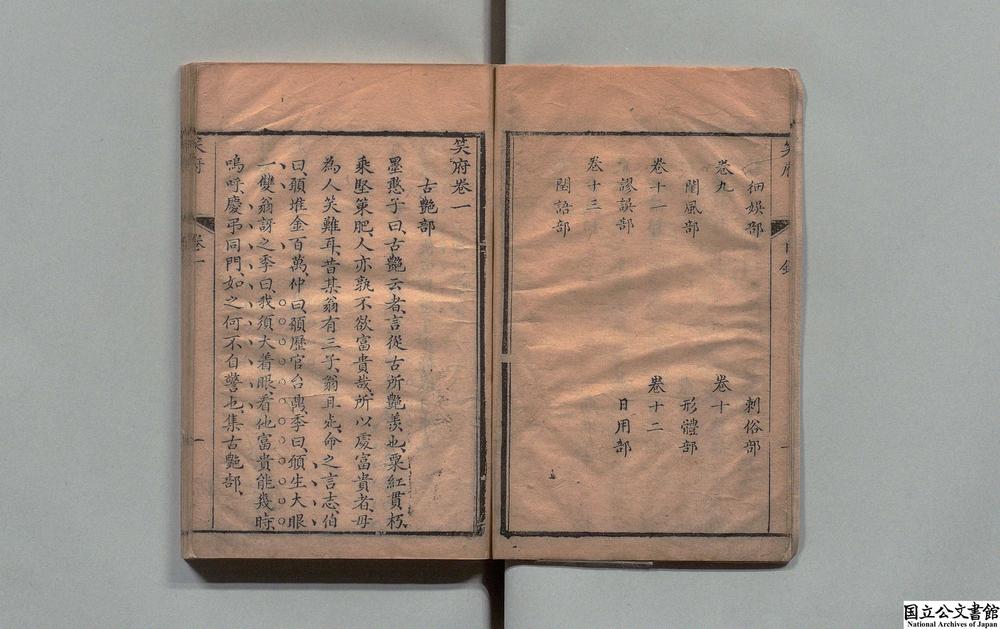 笑府 目錄 一
細娛部 刺俗部
卷九 卷十
閨風部 形體部
卷十一 卷十二
謬誤部 日用部
卷十三
閏語部
笑府卷一
古艷部
墨憨子曰、古艷云者、言從古所艷羨也、粟紅貫朽、
乘堅策肥、人亦孰不欲富貴哉、所以處富貴者、毋
為人笑難耳、昔某翁有三子、翁且死、命之言志、伯
曰、願堆金百萬、仲曰、願歷官台鼎、季曰、願生大眼
一雙、翁訝之、季曰、我須大着眼、看他富貴能幾時、
嗚呼、慶弔同門、如之何不自警也、集古艷部、
笑府 卷一 一
国立公文書館
National Archives of Japan